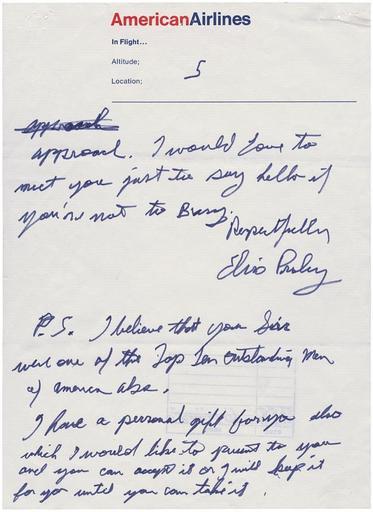 AmericanAirlines
In Flight...
Altitude;
Location;
5
approach
approach. I would love to
meet you just to say hello if
you're not to Busy.
Respectfully
Elvis Presley
P.S. I believe that you Sir
were one of the Top Ten outstanding men
of america also.
I have a personal gift for you also
which I would like to present to you
and you can accept it or I will keep it
for you until you can take it.